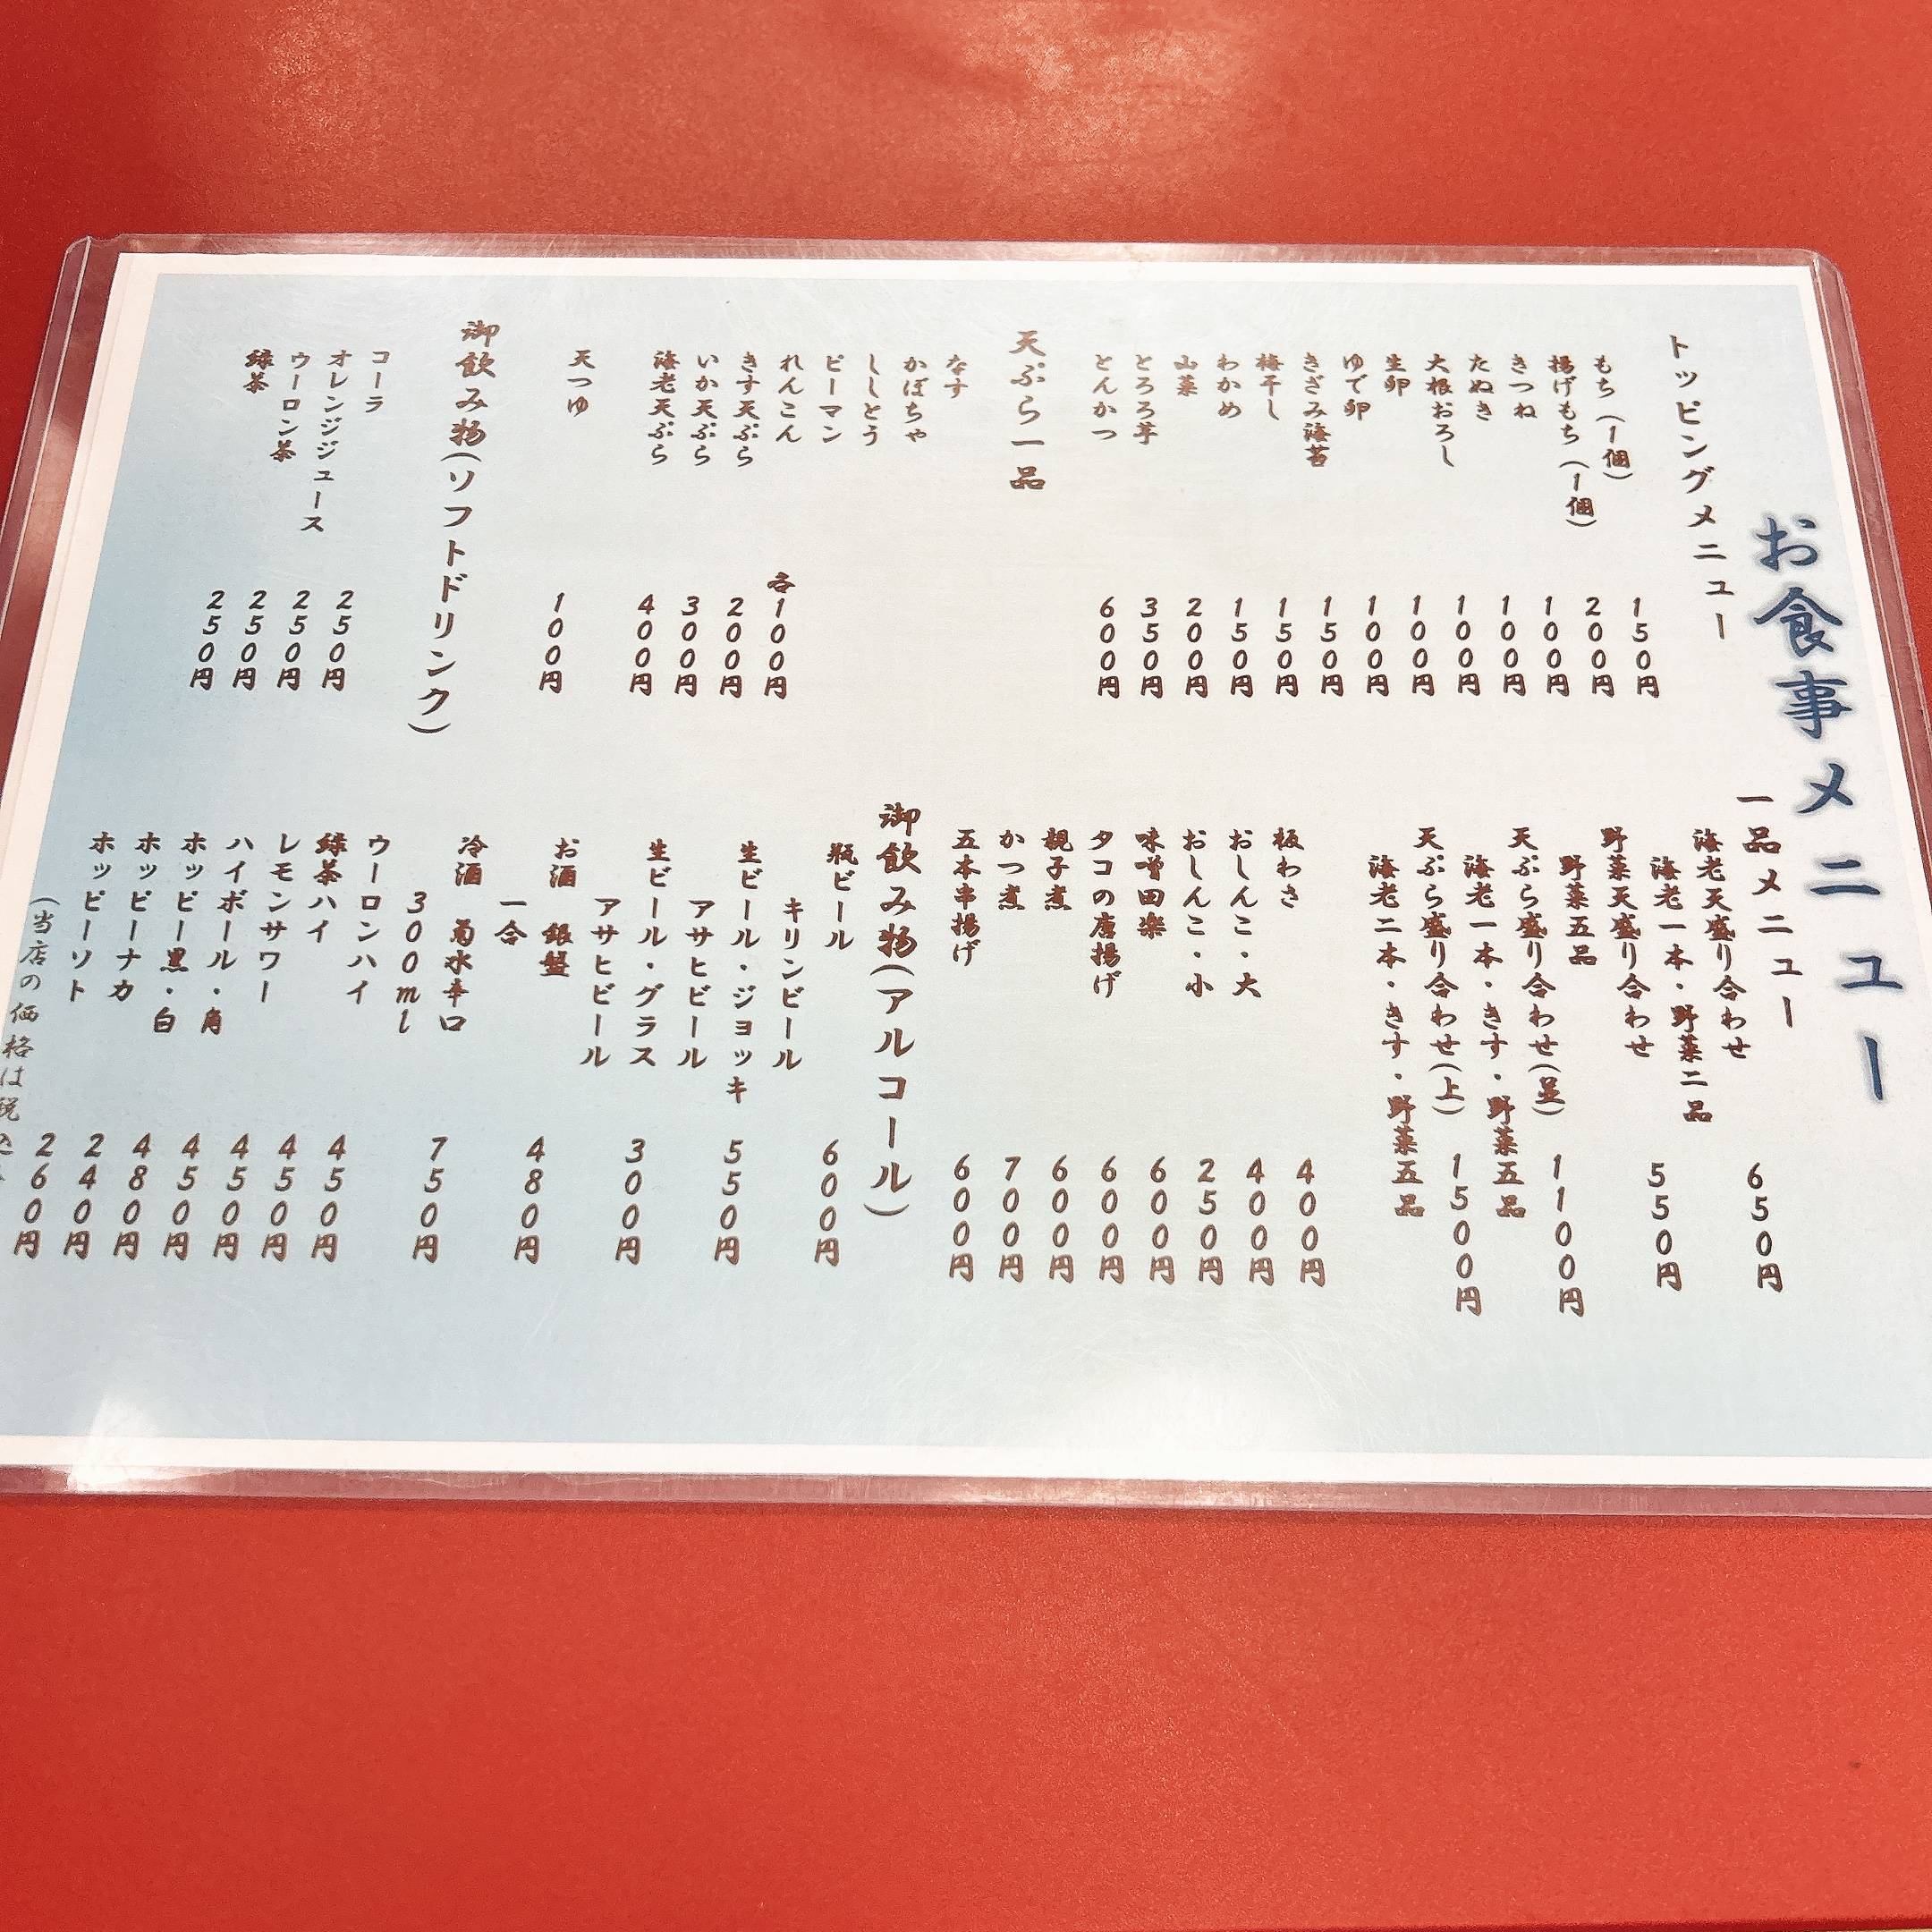 お食事メニュー
トッピングメニュー
もち(1個) 150円
揚げもち(1個) 200円
きつね 100円
たぬき 100円
大根おろし 100円
生卵 100円
ゆで卵 100円
きざみ海苔 150円
梅干し 150円
わかめ 150円
山菜 200円
とろろ芋 350円
とんかつ 600円
天ぷら一品
なす
かぼちゃ
ししとう
ピーマン
れんこん 各100円
きす天ぷら 200円
いか天ぷら 300円
海老天ぷら 400円
天つゆ 100円
御飲み物(ソフトドリンク)
コーラ 250円
オレンジジュース 250円
ウーロン茶 250円
緑茶 250円
一品メニュー
海老天盛り合わせ 650円
海老一本・野菜二品
野菜天盛り合わせ 550円
野菜五品
天ぷら盛り合わせ(並) 1100円
海老一本・きす・野菜五品
天ぷら盛り合わせ(上) 1500円
海老二本・きす・野菜五品
板わさ 400円
おしんこ・大 400円
おしんこ・小 250円
味噌田楽 600円
タコの唐揚げ 600円
親子煮 600円
かつ煮 700円
五本串揚げ 600円
御飲み物(アルコール)
瓶ビール 600円
キリンビール
生ビール・ジョッキ 550円
アサヒビール
生ビール・グラス 300円
アサヒビール
お酒 銀盤 480円
一合
冷酒 菊水辛口 750円
300ml
ウーロンハイ 450円
緑茶ハイ 450円
レモンサワー 450円
ハイボール・角 450円
ホッピー黒・白 480円
ホッピーナカ 240円
ホッピーソト 260円
(当店の価格は税